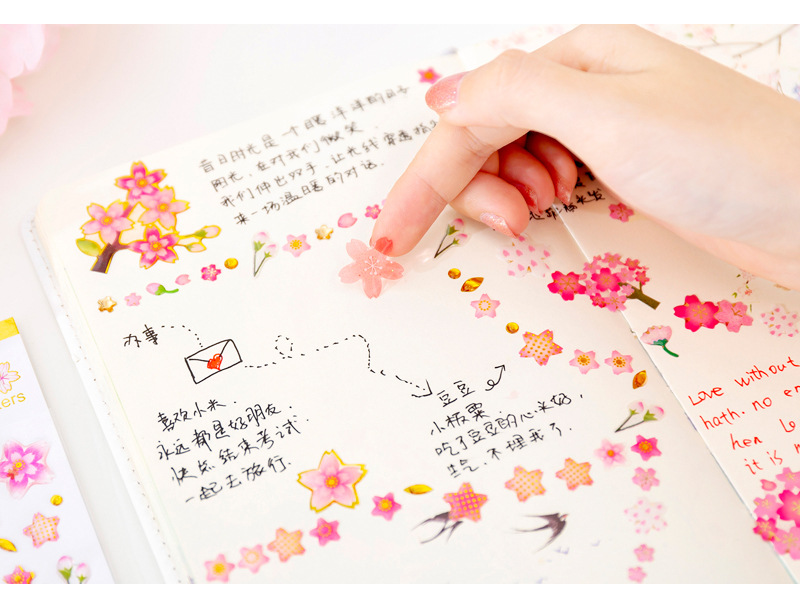 昔日时光是一个暖洋洋的日子
阳光,在对我们微笑
我们伸出双手,让光线穿透指尖
来一场温暖的对话.
办事
喜欢小米.
永远都是好朋友.
快点结束考试
一起去旅行.
豆豆
小板栗
吃了豆豆的心米好,
生气.不理我了.
Love without
hath. no en
her Lo
it is m
ers